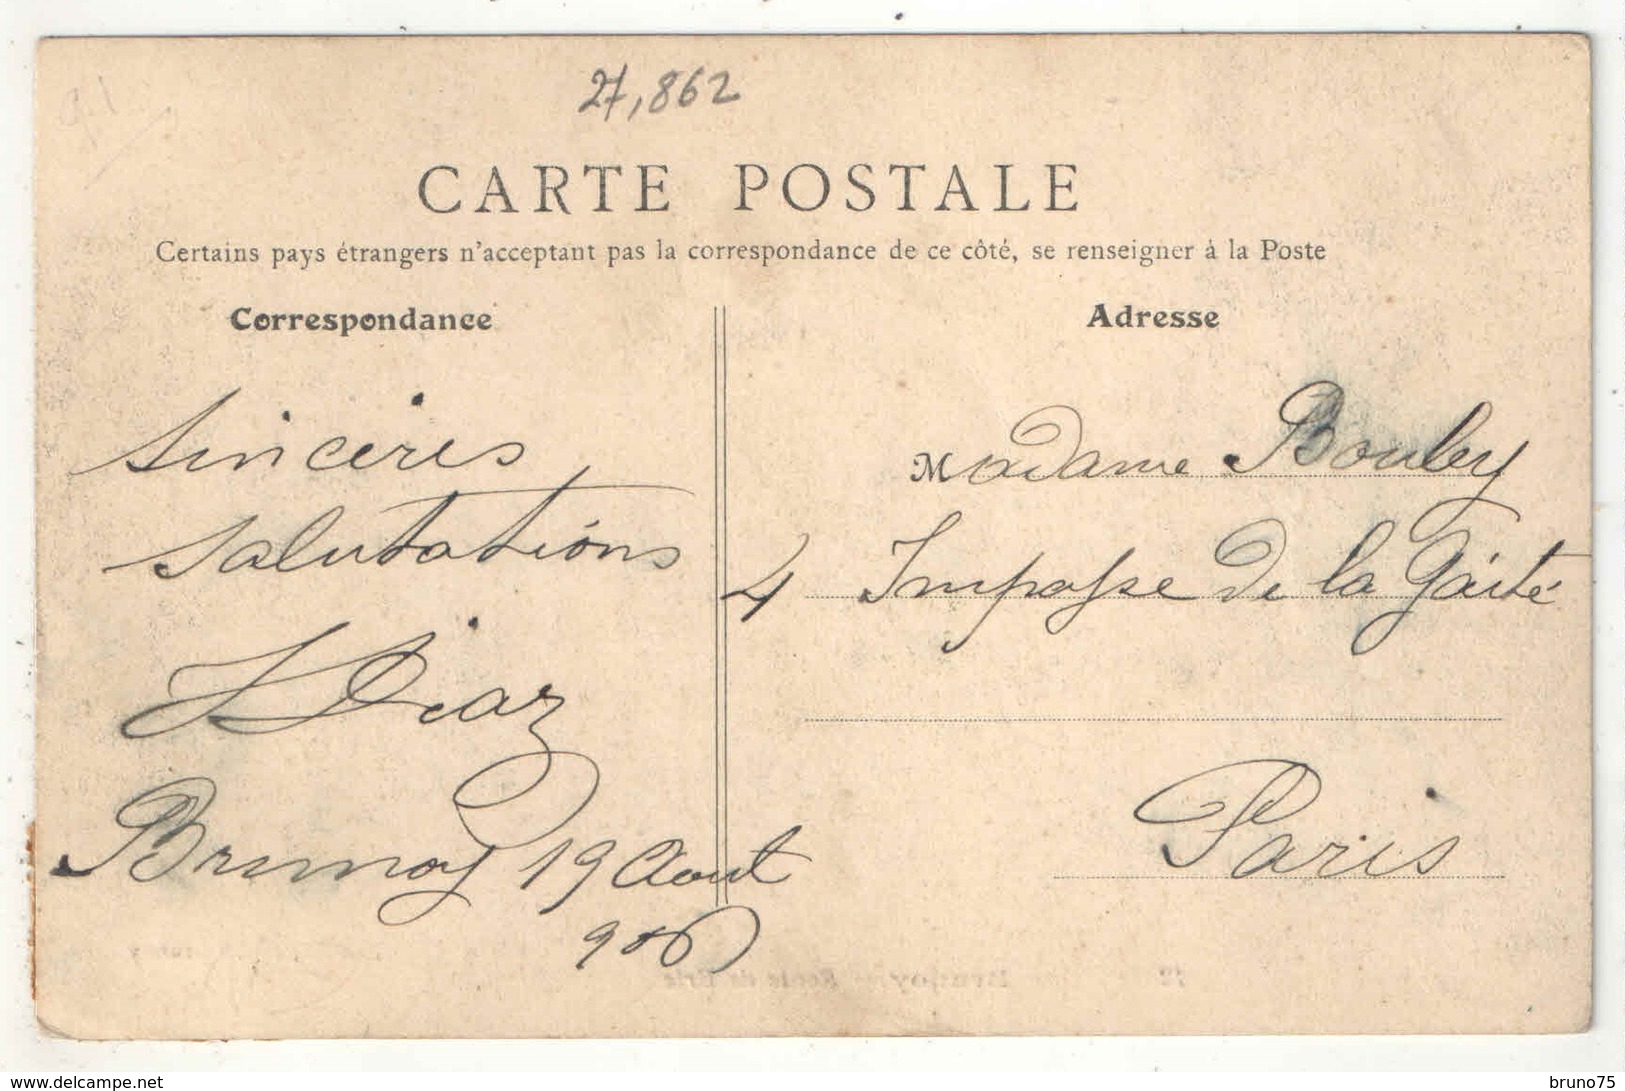 91
27,862
CARTE POSTALE
Certains pays étrangers n'acceptant pas la correspondance de ce côté, se renseigner à la Poste
Correspondance
Sincères
salutations
Diaz
Brunoy 19 Aout
906
Adresse
Madame Bouley
4 Impasse de la Gaité
Paris
www.delcampe.net
bruno75